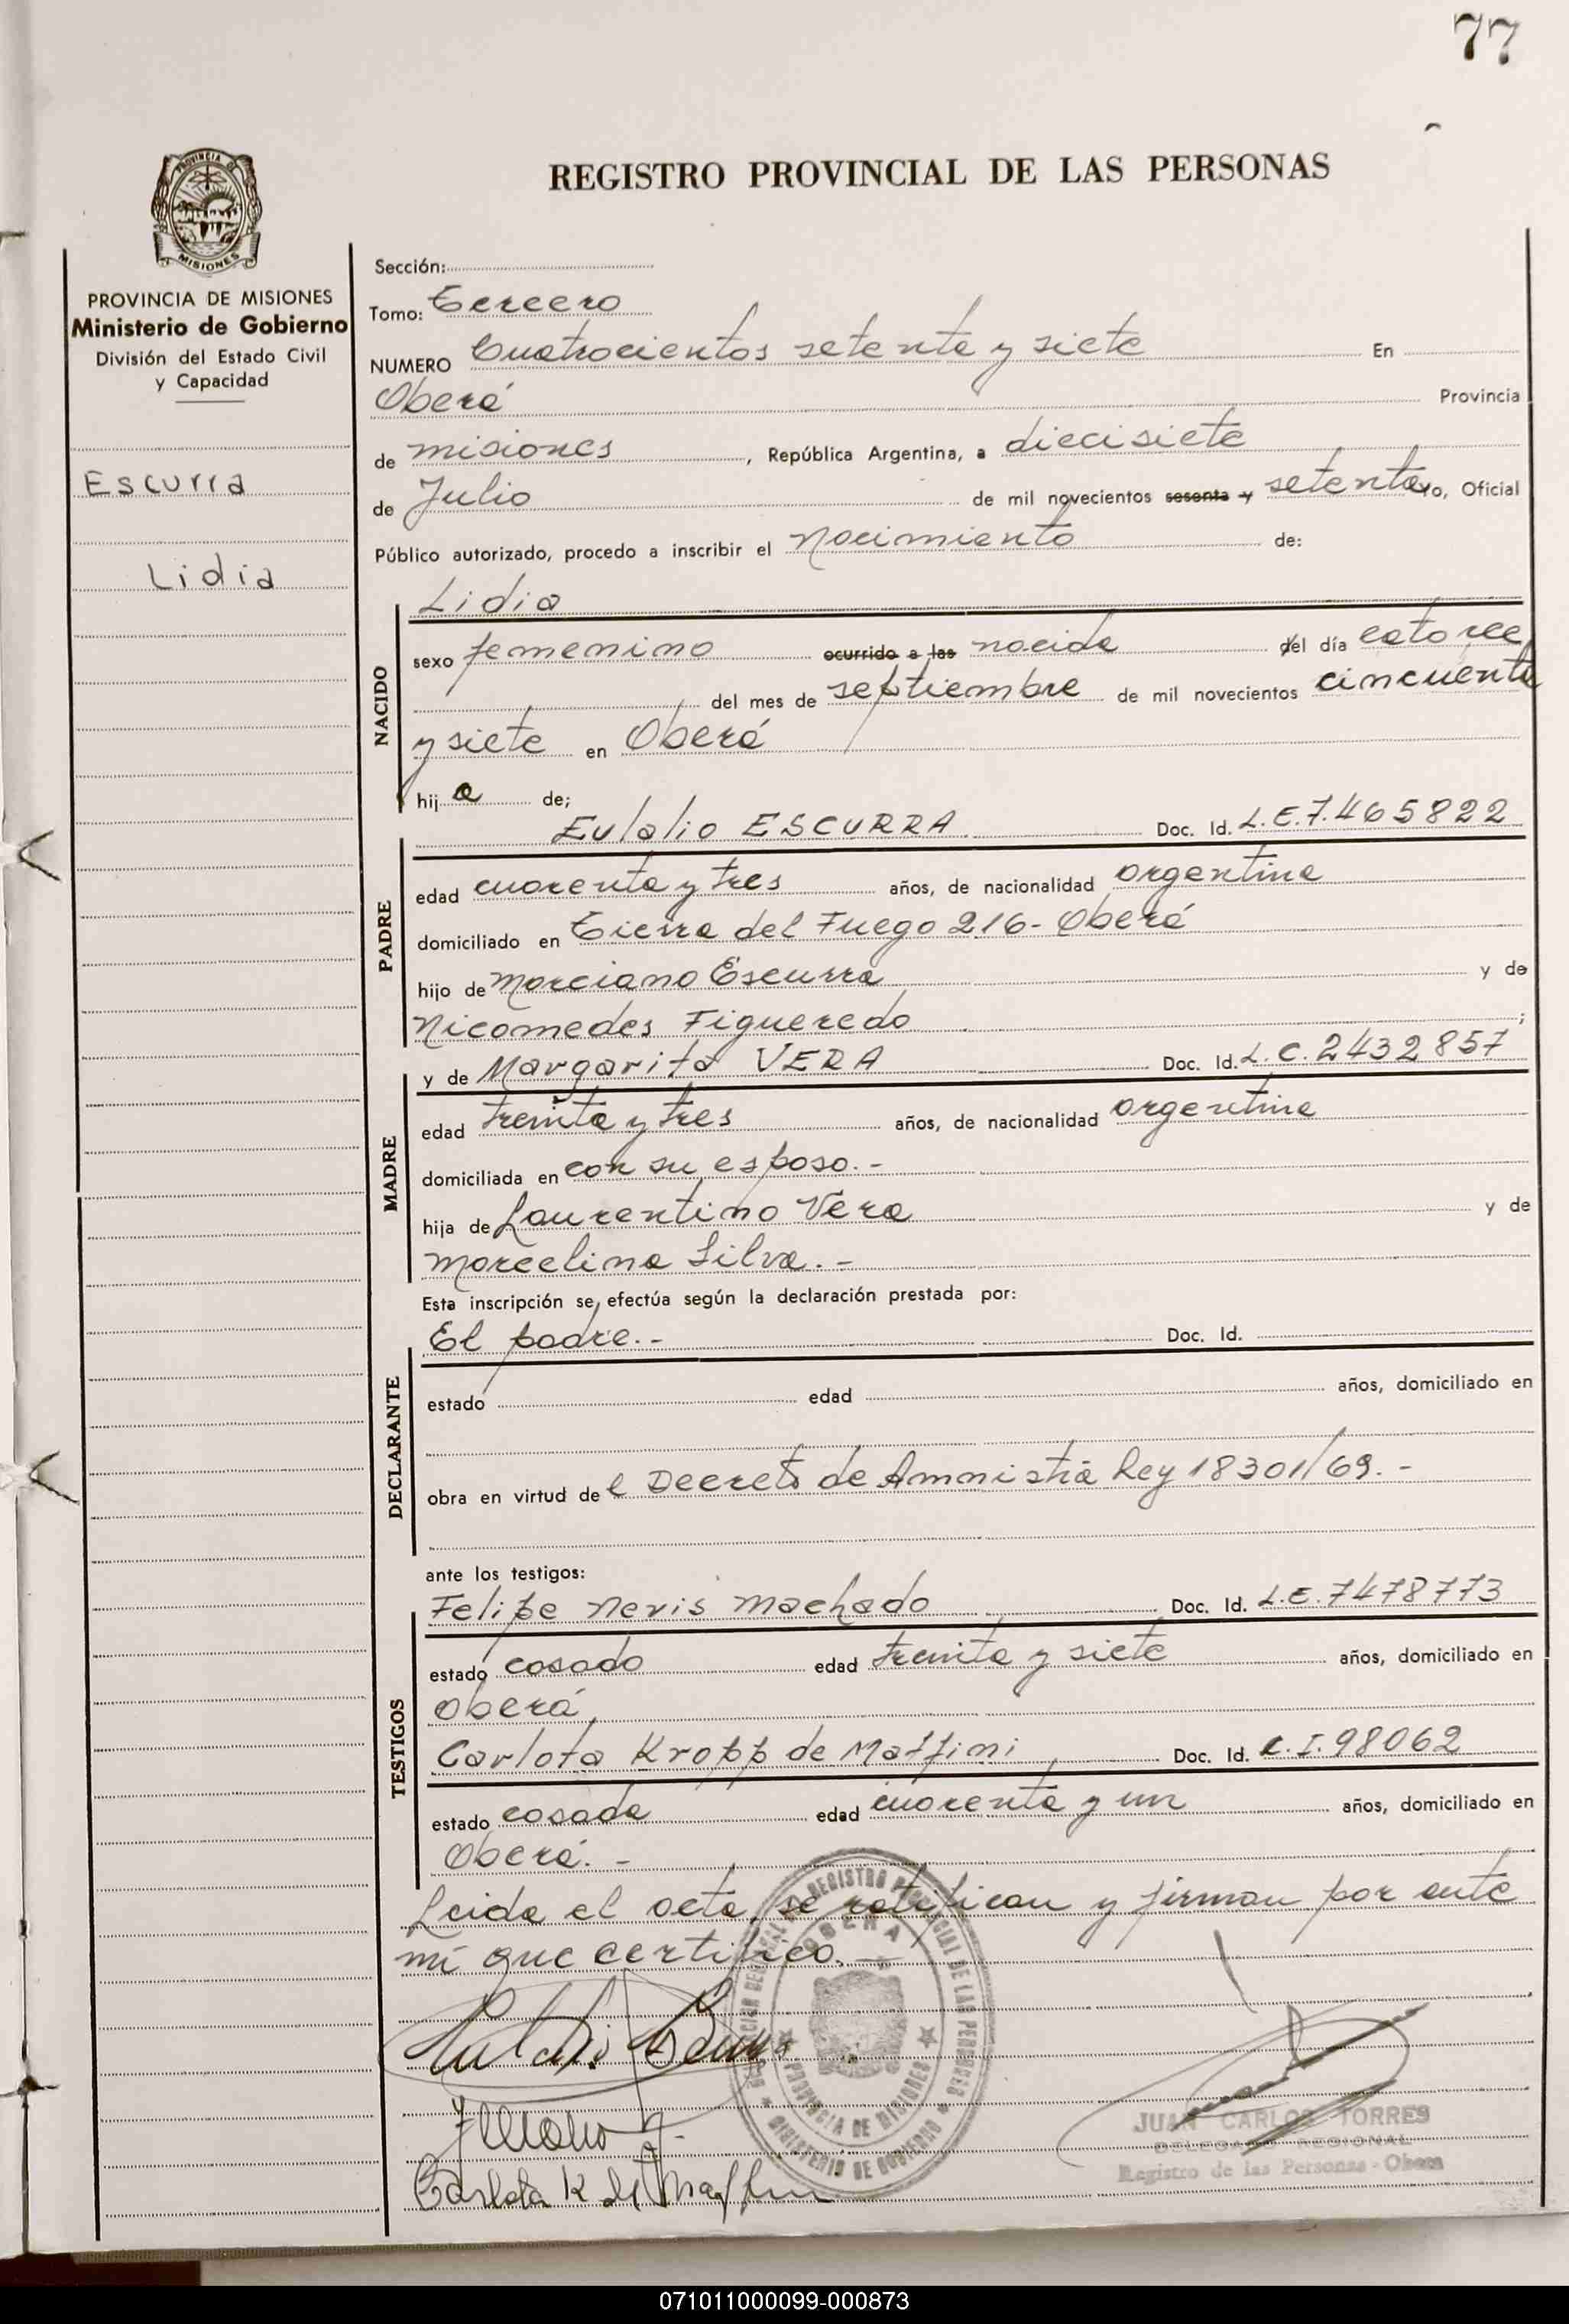 77
REGISTRO PROVINCIAL DE LAS PERSONAS
PROVINCIA DE MISIONES
Ministerio de Gobierno
División del Estado Civil
y Capacidad
Escurra
Lidia
Sección:
Tomo: Tercero
NUMERO Cuatrocientos setenta y siete En
Oberá Provincia
de misiones, República Argentina, a diecisiete
de Julio de mil novecientos sesenta y setenta yo, Oficial
Público autorizado, procedo a inscribir el nacimiento de:
NACIDO
Lidia
sexo femenino ocurrido a las nacida del día catorce
del mes de septiembre de mil novecientos cincuenta
y siete en Oberá
hija de;
Eulalio ESCURRA Doc. Id. L.E.7.465822
PADRE
edad cuarenta y tres años, de nacionalidad argentina
domiciliado en Tierra del Fuego 216- Oberá
hijo de Marciano Escurra y de
Nicomedes Figueredo;
y de Margarita VERA Doc. Id. L.C.2432857
MADRE
edad treinta y tres años, de nacionalidad argentina
domiciliada en con su esposo.-
hija de Laurentino Vera y de
Marcelina Silva.-
Esta inscripción se efectúa según la declaración prestada por:
El padre.- Doc. Id.
DECLARANTE
estado edad años, domiciliado en
obra en virtud del Decreto de Amnistía Ley 18301/69.-
ante los testigos:
Felipe Neris Machado Doc. Id. L.E.7478773
TESTIGOS
estado casado edad treinta y siete años, domiciliado en
Oberá
Carlota Kropp de Maffini Doc. Id. C.I.98062
estado casada edad cuarenta y un años, domiciliado en
Oberá.-
Leida el acta, se ratifican y firman por ante
mí que certifico.
Carlota K de Maffini
OBERA
PROVINCIA DE MISIONES
MINISTERIO DE GOBIERNO
JUAN CARLOS TORRES
DELEGADO REGIONAL
Registro de las Personas - Obera
071011000099-000873